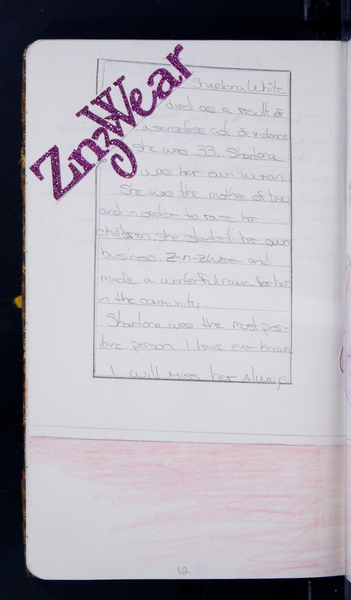 ZnzWear
White
died as a result of
a senseless act of violence
she was 33. Shartona
was her own woman.
She was the mother of two
and in order to raise her
children she started her own
business. Z-n-Z Wear and
made a wonderful name for her
in the community.
Shartona was the most pos-
itive person I have ever known
I will miss her always
12